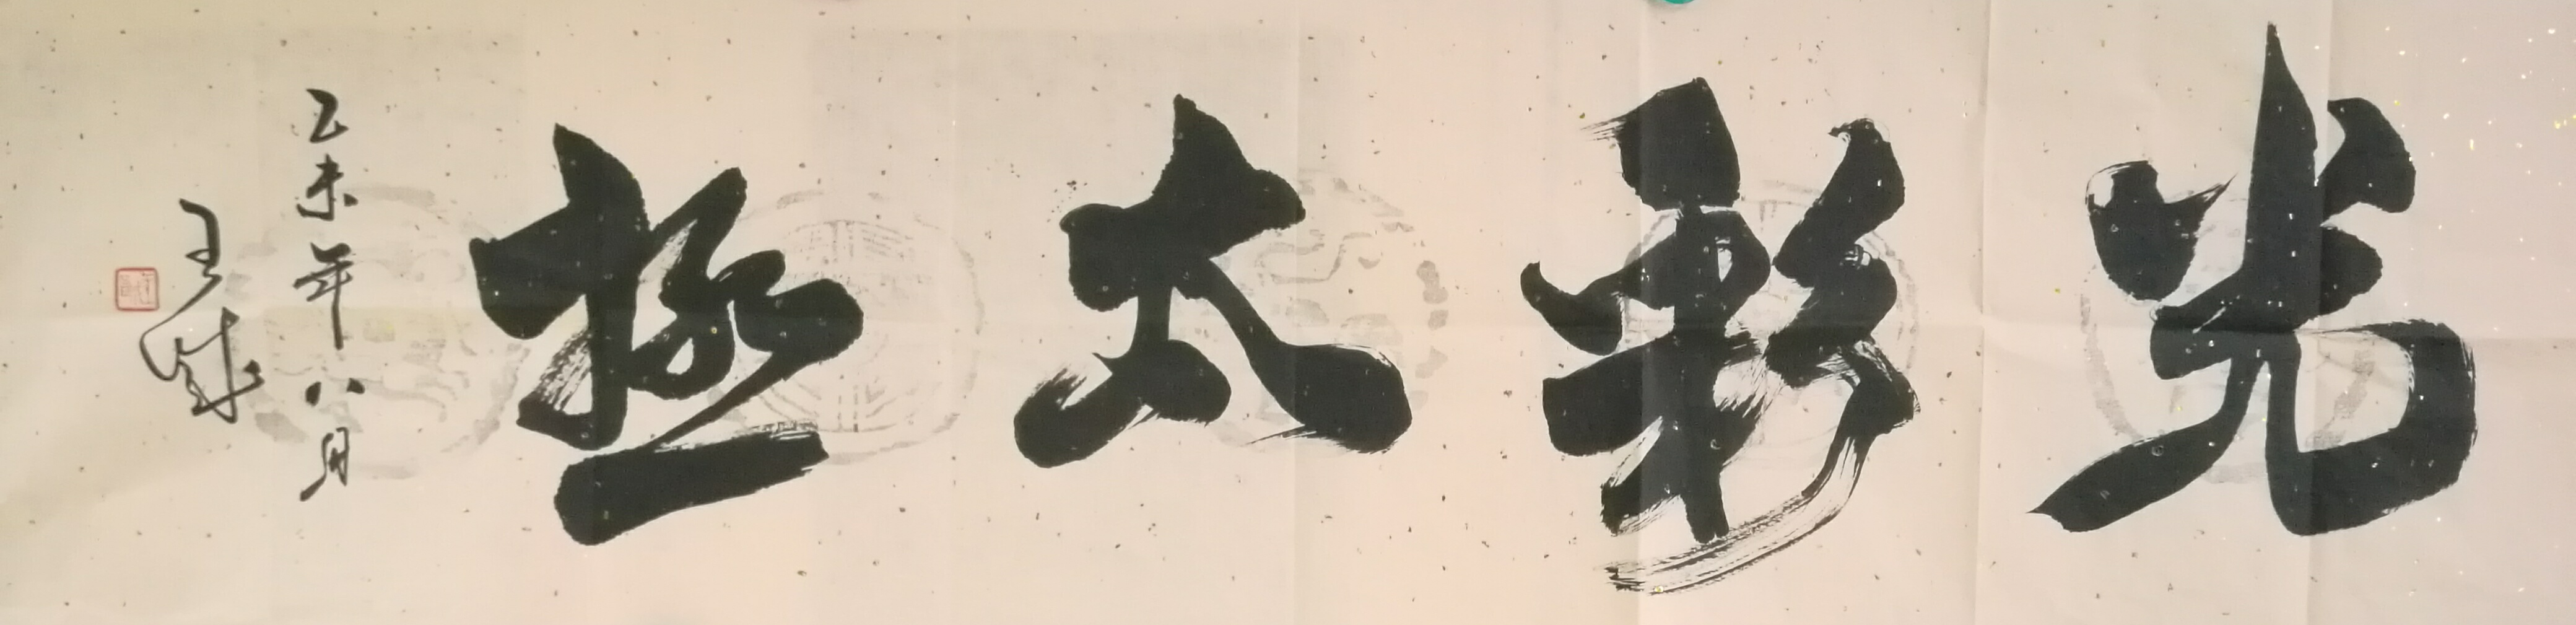 光彩太极
乙未年八月
王